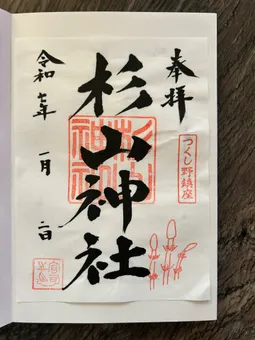 奉拝
つくし野鎮座
杉山神社
杉山
神社
令和七年 一月 二日